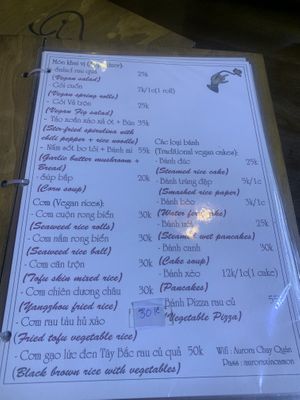 Món khai vị
- Salad rau quả 25k
(Vegan salad)
- Gỏi cuốn 7k/1c(1 roll)
(Vegan spring rolls)
- Gỏi Vả trộn 25k
(Vegan Fig salad)
- Tảo xoắn xào xả ớt + Bún 35k
(Ster-fried spirulina with
chili pepper + rice noodle)
- Nấm sốt bơ tỏi + Bánh mì 55k
(Garlic butter mushroom +
Bread)
- Súp bắp 20k
(Corn soup)
Cơm (Vegan rices):
- Cơm cuộn rong biển 30k
(Seaweed rice rolls)
- Cơm nắm rong biển 30k
(Seaweed rice ball)
- Cơm cân trộn 30k
(Tofu skin mixed rice)
- Cơm chiên dương châu 30k
(Yangzhou fried rice)
- Cơm rau tẩu hủ xào 30k
(Fried tofu vegetable rice)
- Cơm gạo lức đen Tây Bắc rau củ quả 50k
(Black brown rice with vegetables)
Các loại bánh
(Traditional vegan cakes):
- Bánh đúc 25k
(Steamed rice cake)
- Bánh tráng đập 5k/1c
(Smashed rice paper)
- Bánh bèo 3k/1c
(Water fern cake)
25k
(Steamed wet pancakes)
- Bánh canh 30k
(Cake soup)
- Bánh xèo 12k/1c(1 cake)
(Pancakes)
Bánh Pizza rau củ
(Vegetable Pizza)
Wifi : Aurora Chay Quán
Pass :